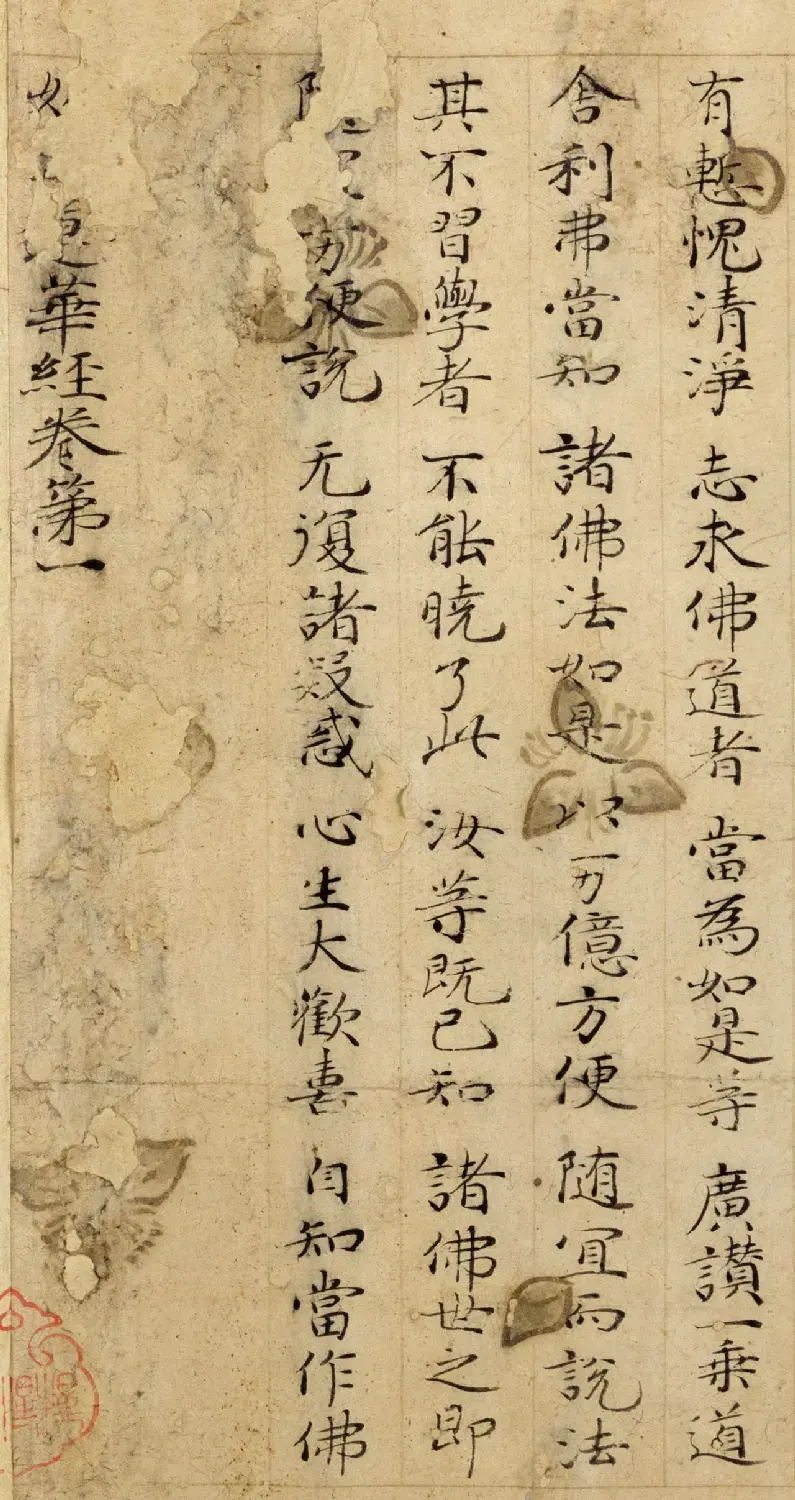 有慙愧清淨 志求佛道者 當為如是等 廣讚一乗道
舍利弗當知 諸佛法如是 以万億方便 随冝而說法
其不習學者 不能暁了此 汝等既已知 諸佛世之師
方便說 无復諸疑惑 心生大歡喜 自知當作佛
蓮華経卷第一